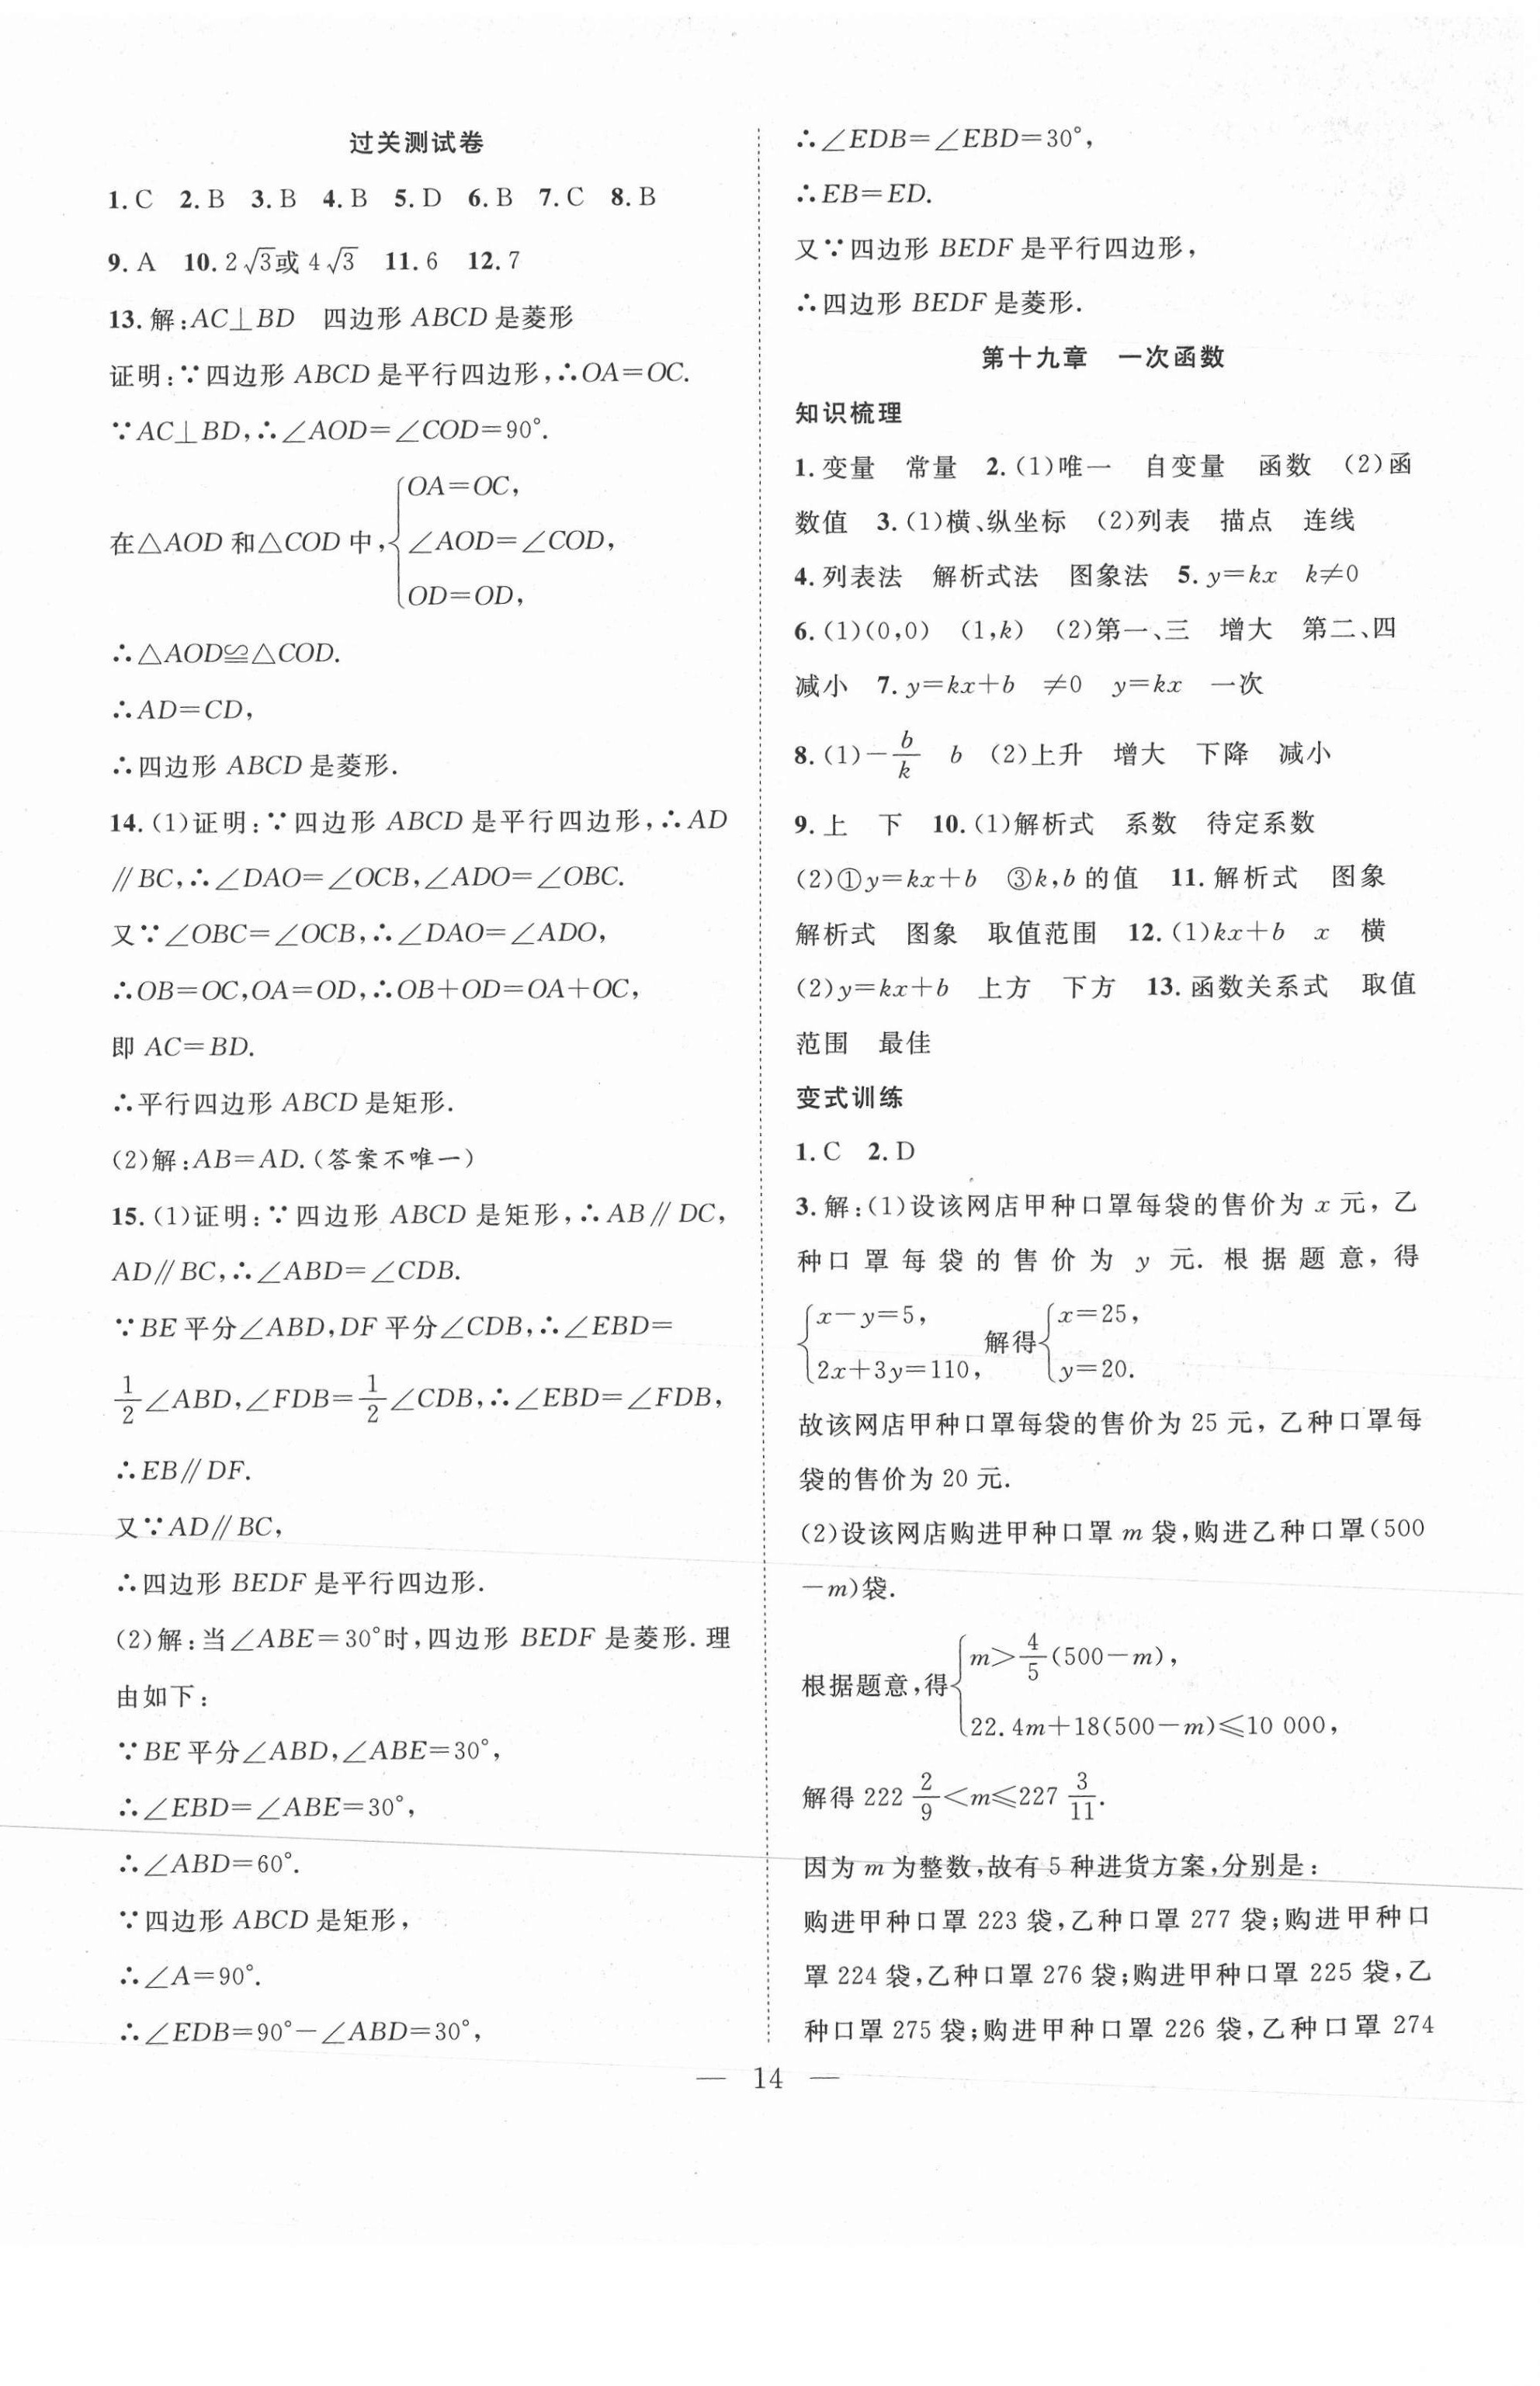 过关测试卷
1.C 2.B 3.B 4.B 5.D 6.B 7.C 8.B
9.A 10.2√3或4√3 11.6 12.7
13.解:AC⊥BD 四边形ABCD是菱形
证明:∵四边形ABCD是平行四边形,∴OA=OC.
∵AC⊥BD,∴∠AOD=∠COD=90°.
在△AOD和△COD中,{OA=OC,
∠AOD=∠COD,
OD=OD,
∴△AOD≌△COD.
∴AD=CD,
∴四边形ABCD是菱形.
14.(1)证明:∵四边形ABCD是平行四边形,∴AD
∥BC,∴∠DAO=∠OCB,∠ADO=∠OBC.
又∵∠OBC=∠OCB,∴∠DAO=∠ADO,
∴OB=OC,OA=OD,∴OB+OD=OA+OC,
即AC=BD.
∴平行四边形ABCD是矩形.
(2)解:AB=AD.(答案不唯一)
15.(1)证明:∵四边形ABCD是矩形,∴AB∥DC,
AD∥BC,∴∠ABD=∠CDB.
∵BE平分∠ABD,DF平分∠CDB,∴∠EBD=
1/2∠ABD,∠FDB=1/2∠CDB,∴∠EBD=∠FDB,
∴EB∥DF.
又∵AD∥BC,
∴四边形BEDF是平行四边形.
(2)解:当∠ABE=30°时,四边形BEDF是菱形.理
由如下:
∵BE平分∠ABD,∠ABE=30°,
∴∠EBD=∠ABE=30°,
∴∠ABD=60°.
∵四边形ABCD是矩形,
∴∠A=90°.
∴∠EDB=90°-∠ABD=30°,
∴∠EDB=∠EBD=30°,
∴EB=ED.
又∵四边形BEDF是平行四边形,
∴四边形BEDF是菱形.
第十九章 一次函数
知识梳理
1.变量 常量 2.(1)唯一 自变量 函数 (2)函
数值 3.(1)横、纵坐标 (2)列表 描点 连线
4.列表法 解析式法 图象法 5.y=kx k≠0
6.(1)(0,0) (1,k) (2)第一、三 增大 第二、四
减小 7.y=kx+b ≠0 y=kx 一次
8.(1)-b/k b (2)上升 增大 下降 减小
9.上 下 10.(1)解析式 系数 待定系数
(2)①y=kx+b ③k,b的值 11.解析式 图象
解析式 图象 取值范围 12.(1)kx+b x 横
(2)y=kx+b 上方 下方 13.函数关系式 取值
范围 最佳
变式训练
1.C 2.D
3.解:(1)设该网店甲种口罩每袋的售价为x元,乙
种口罩每袋的售价为y元.根据题意,得
{x-y=5, 2x+3y=110, 解得{x=25, y=20.
故该网店甲种口罩每袋的售价为25元,乙种口罩每
袋的售价为20元.
(2)设该网店购进甲种口罩m袋,购进乙种口罩(500
-m)袋.
根据题意,得{m>4/5(500-m),
22.4m+18(500-m)≤10 000,
解得222 2/9<m≤227 3/11.
因为m为整数,故有5种进货方案,分别是:
购进甲种口罩223袋,乙种口罩277袋;购进甲种口
罩224袋,乙种口罩276袋;购进甲种口罩225袋,乙
种口罩275袋;购进甲种口罩226袋,乙种口罩274
— 14 —